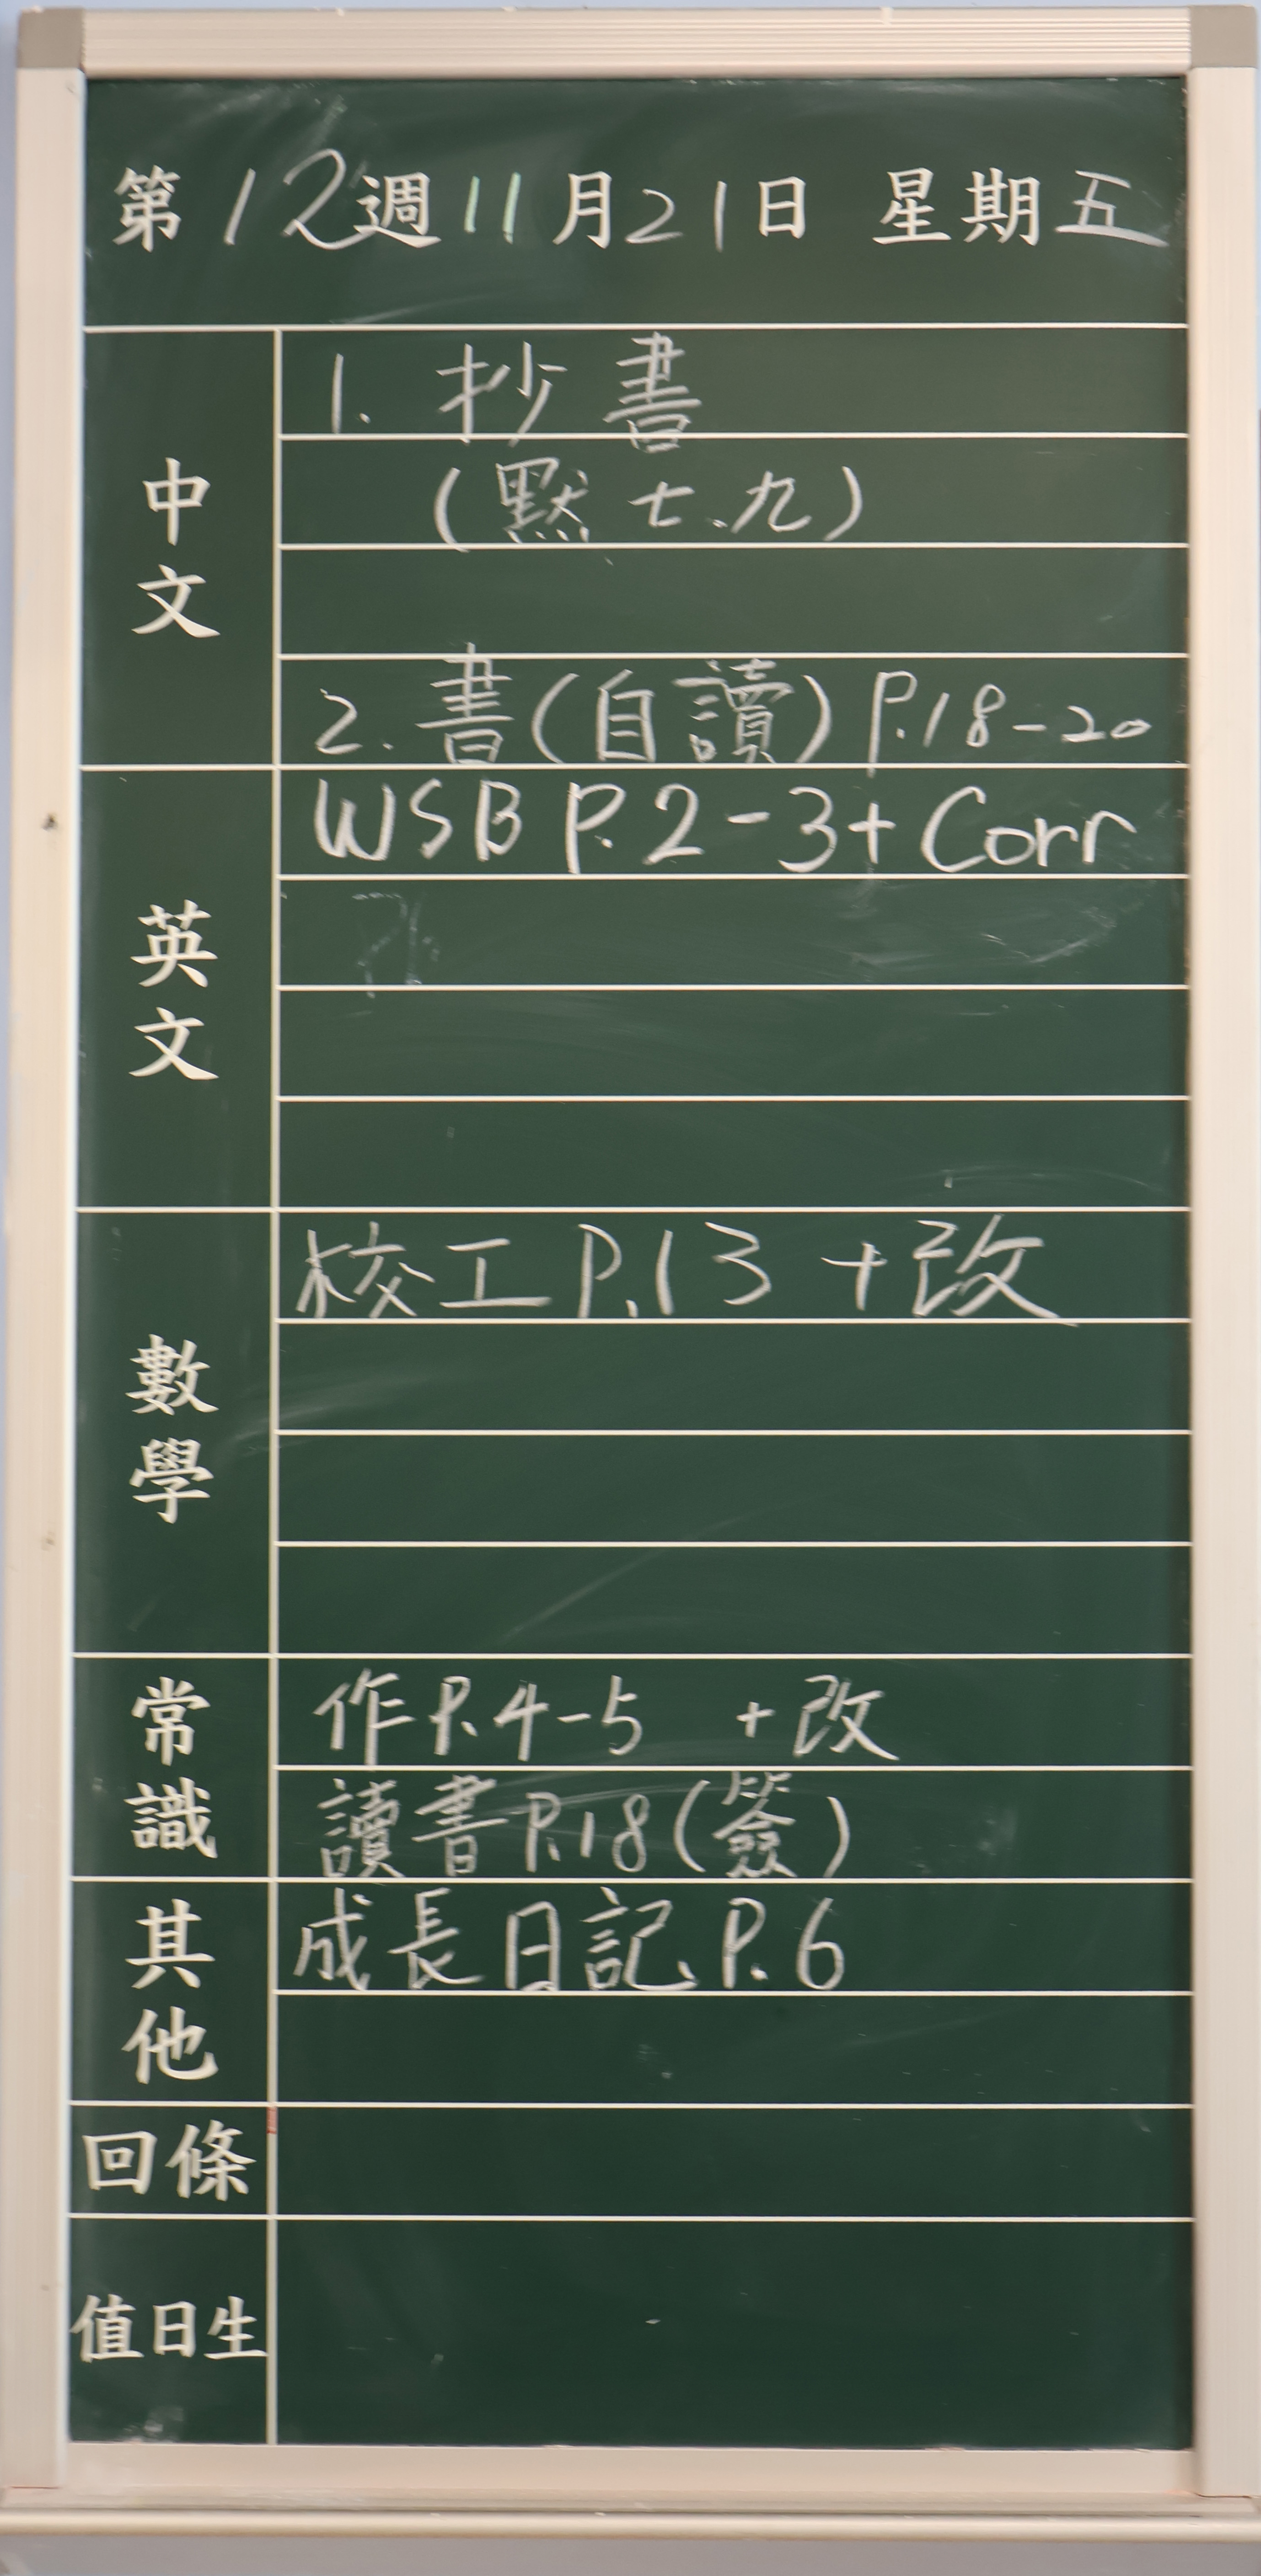 第12週11月21日 星期五
中文
1. 抄書
(默七、九)
2. 書(自讀) P.18-20
英文
WSB P.2-3+Corr
數學
校工 P.13 +改
常識
作P.4-5 +改
讀書P.18(簽)
其他
成長日記 P.6
回條
值日生